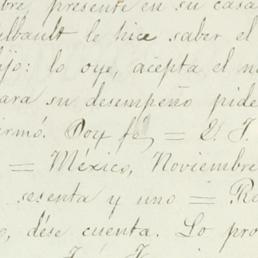 bre, presente en su casa
lbault le hice saber el
ijo: lo oye, acepta el n
ara su desempeño pide
irmó. Doy fé, = L. T.
= México, Noviembre
esenta y uno = Re
o, dése cuenta. Lo pro